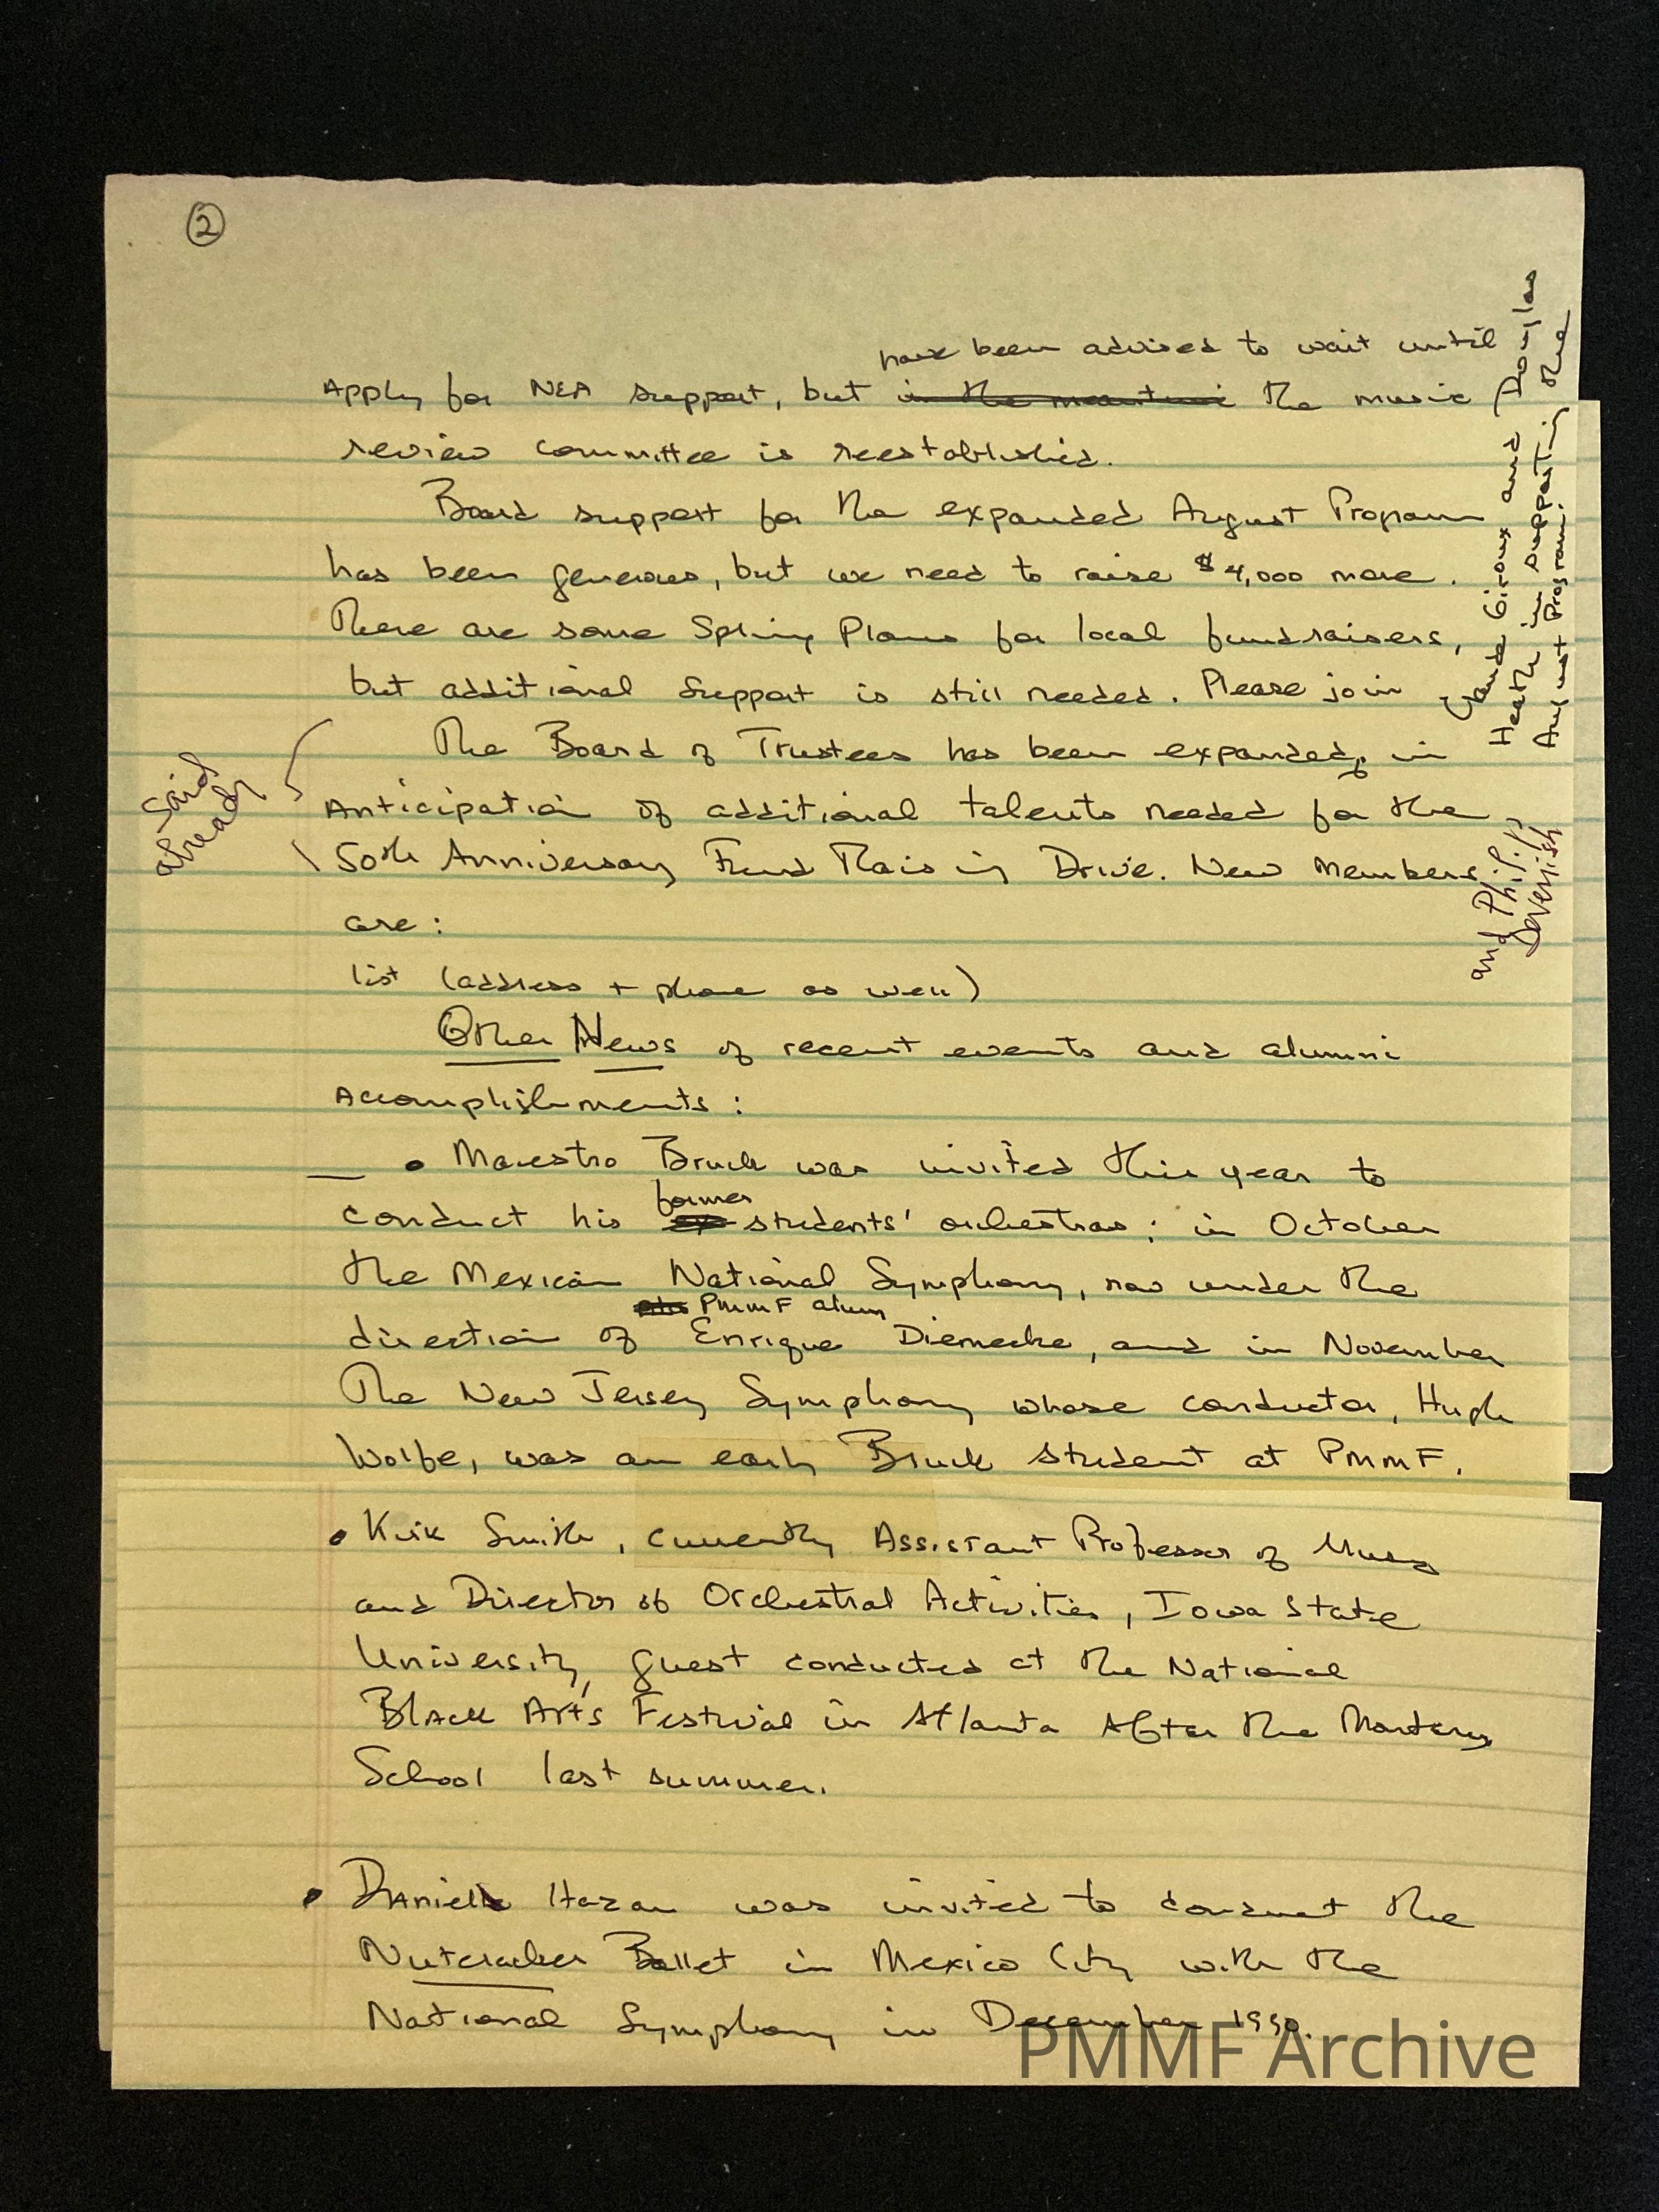 2
have been advised to wait until
Apply for NEA support, but in the meantime the music
review committee is reestablished.
Board support for the expanded August Program
has been generous, but we need to raise $4,000 more.
There are some Spring Plans for local fundraisers,
but additional support is still needed. Please join
Claude Giroux and Douglas
Heath in supporting the
August Program.
The Board of Trustees has been expanded, in
Anticipation of additional talents needed for the
50th Anniversary Fund Raising Drive. New Members
are:
said
already
and Philip
Devenish
list (address + phone as well)
Other News of recent events and alumni
Accomplishments:
• Maestro Bruck was invited this year to
former
conduct his ex students' orchestras: in October
the Mexican National Symphony, now under the
PMMF alum
direction of Enrique Diemecke, and in November
The New Jersey Symphony whose conductor, Hugh
Wolfe, was an early Bruck student at PMMF.
• Kirk Smith, currently Assistant Professor of Music
and Director of Orchestral Activities, Iowa State
University, guest conducted at the National
Black Arts Festival in Atlanta After the Monteux
School last summer.
• Daniell Hazan was invited to conduct the
Nutcracker Ballet in Mexico City with the
National Symphony in December 1990.
PMMF Archive